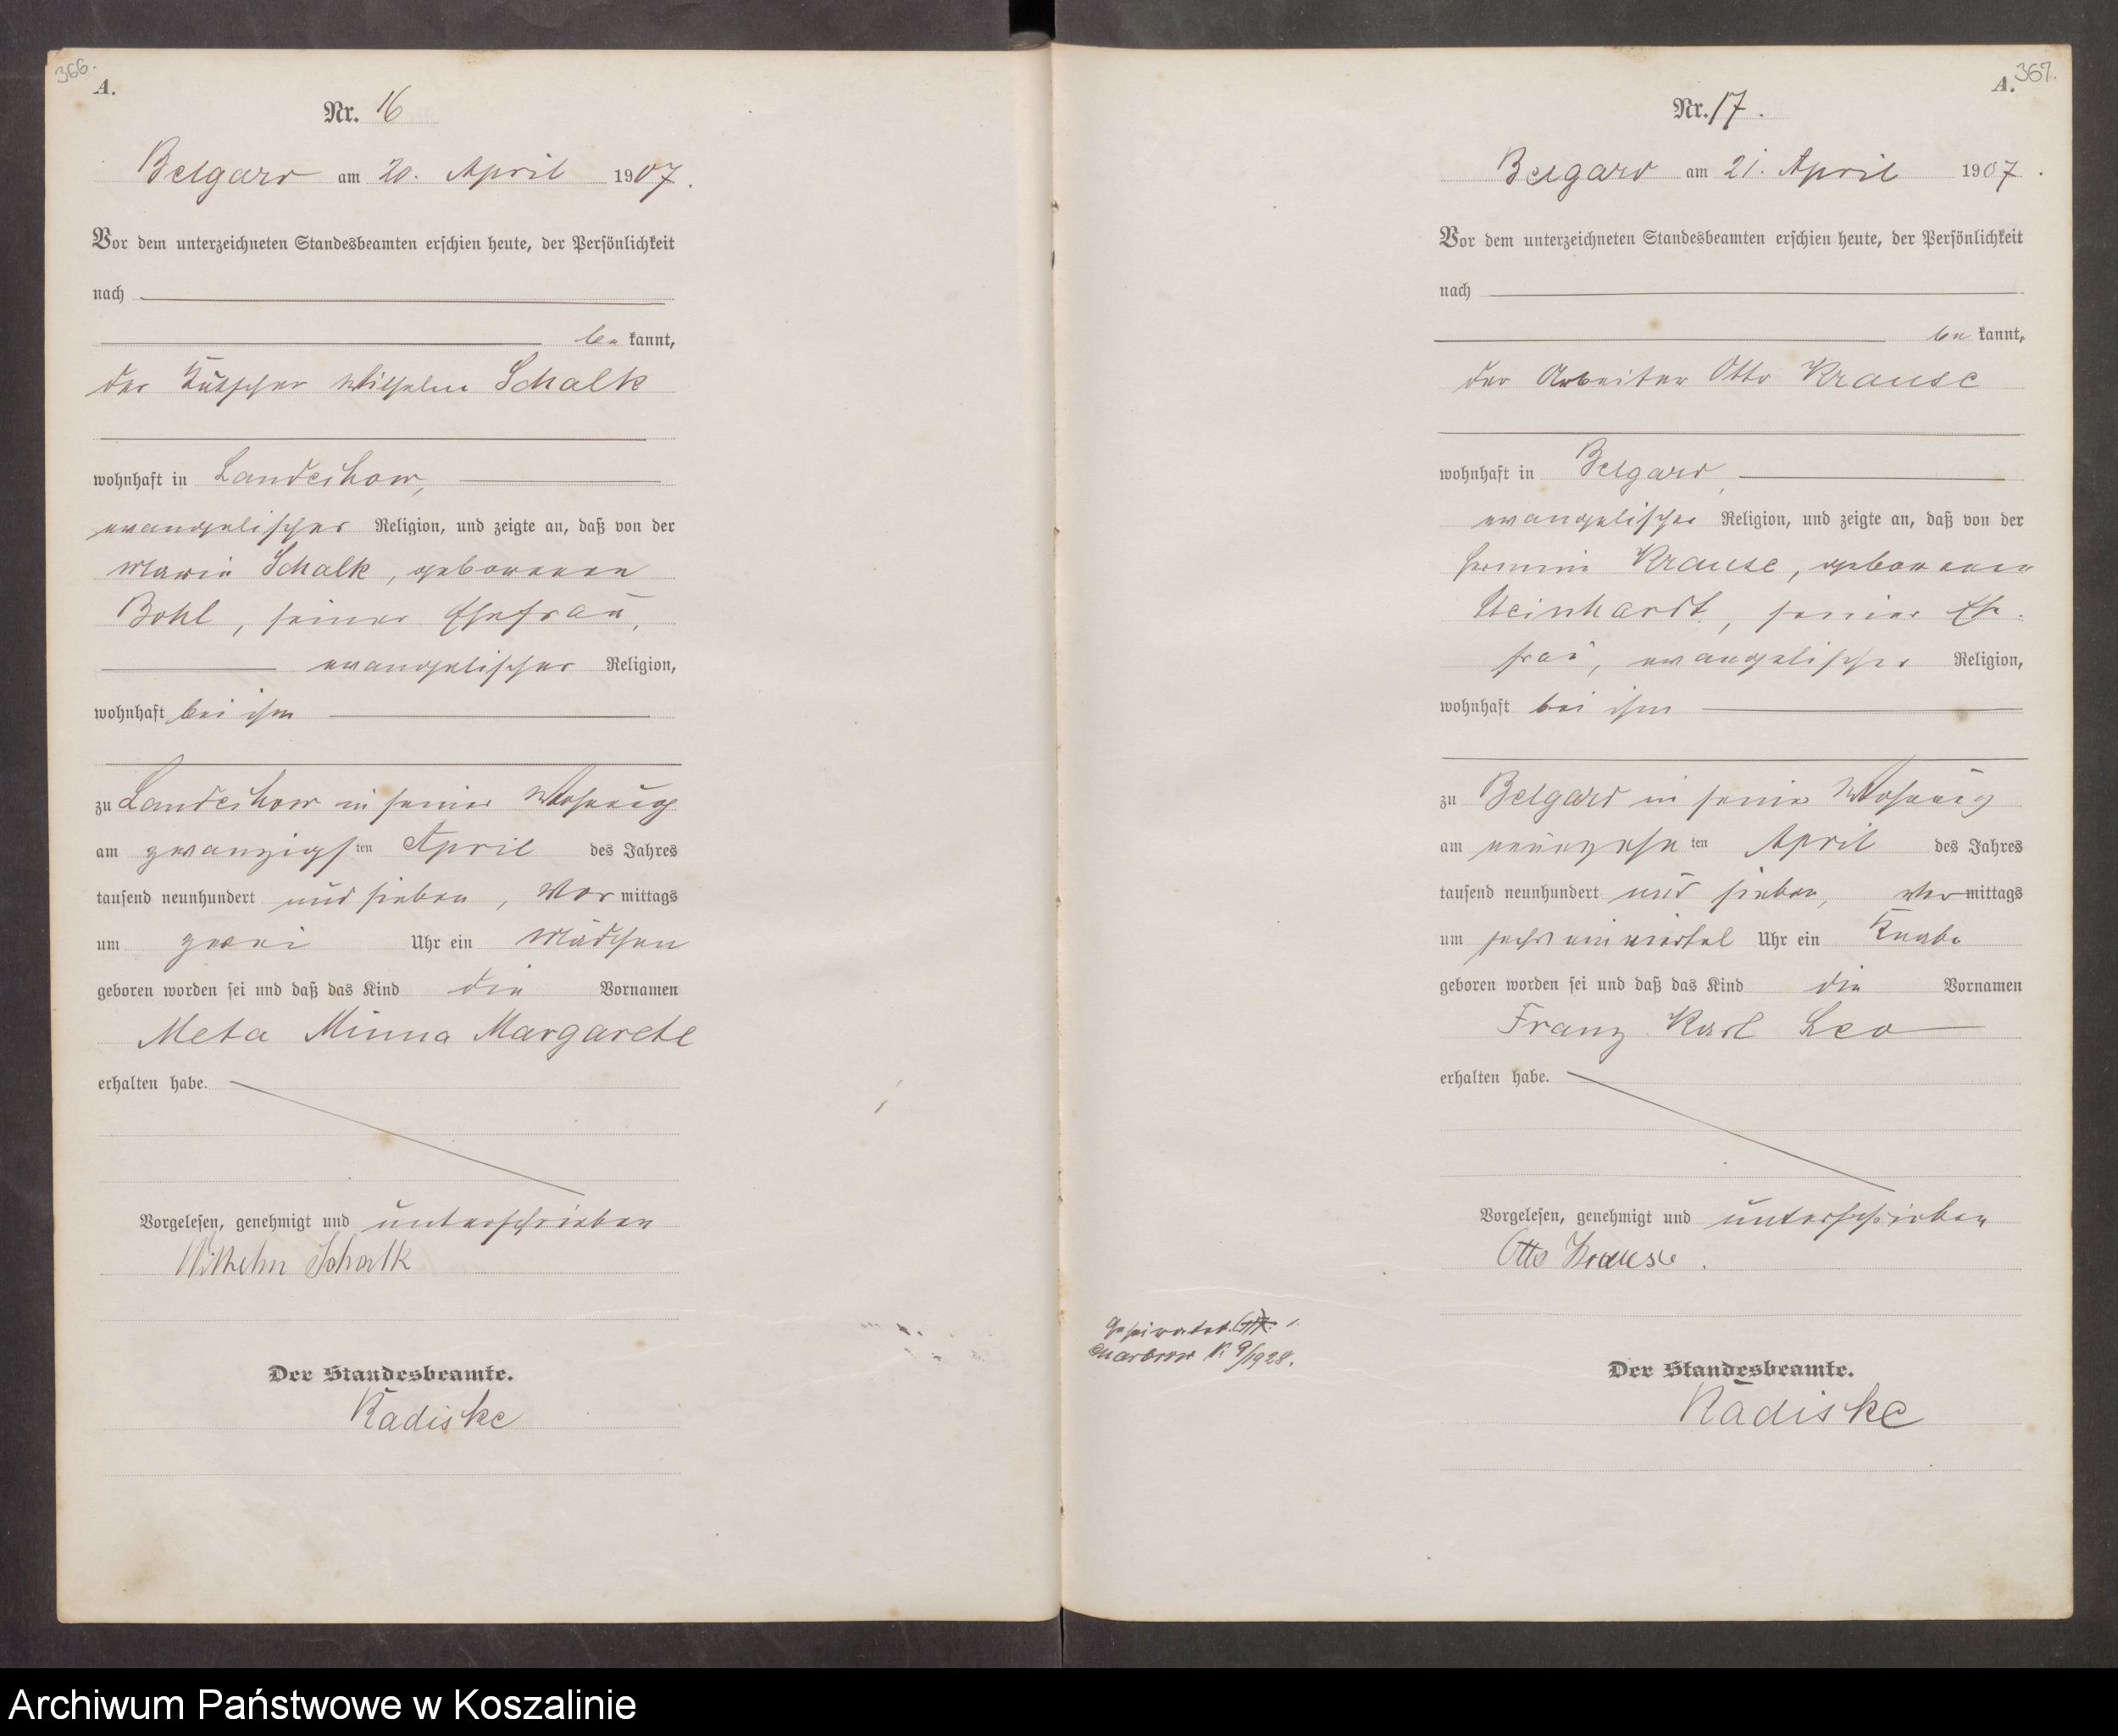 366.
A.
Nr. 16
Belgard am 20. April 1907.
Vor dem unterzeichneten Standesbeamten erschien heute, der Persönlichkeit
nach
be kannt,
der Kutscher Wilhelm Schalk
wohnhaft in Landechow,
evangelischer Religion, und zeigte an, daß von der
Marie Schalk, geborenen
Bohl, seiner Ehefrau,
evangelischer Religion,
wohnhaft bei ihm
zu Landechow in seiner Wohnung
am zwanzigsten April des Jahres
tausend neunhundert und sieben, Vor mittags
um zwei Uhr ein Mädchen
geboren worden sei und daß das Kind die Vornamen
Meta Minna Margarete
erhalten habe.
Vorgelesen, genehmigt und unterschrieben
Wilhelm Schalk
Der Standesbeamte.
Radiske
367.
A.
Nr. 17.
Belgard am 21. April 1907.
Vor dem unterzeichneten Standesbeamten erschien heute, der Persönlichkeit
nach
be kannt,
der Arbeiter Otto Krause
wohnhaft in Belgard,
evangelischer Religion, und zeigte an, daß von der
Krause, geborenen
seiner Ehe-
frau, evangelischer Religion,
wohnhaft bei ihm
zu Belgard in seiner Wohnung
am neunzehnten April des Jahres
tausend neunhundert und sieben, Vor mittags
um sechs ein viertel Uhr ein Knabe
geboren worden sei und daß das Kind die Vornamen
Franz Karl Leo
erhalten habe.
Vorgelesen, genehmigt und unterschrieben
Otto Krause.
Geheiratet
9/1928.
Der Standesbeamte.
Radiske
Archiwum Państwowe w Koszalinie